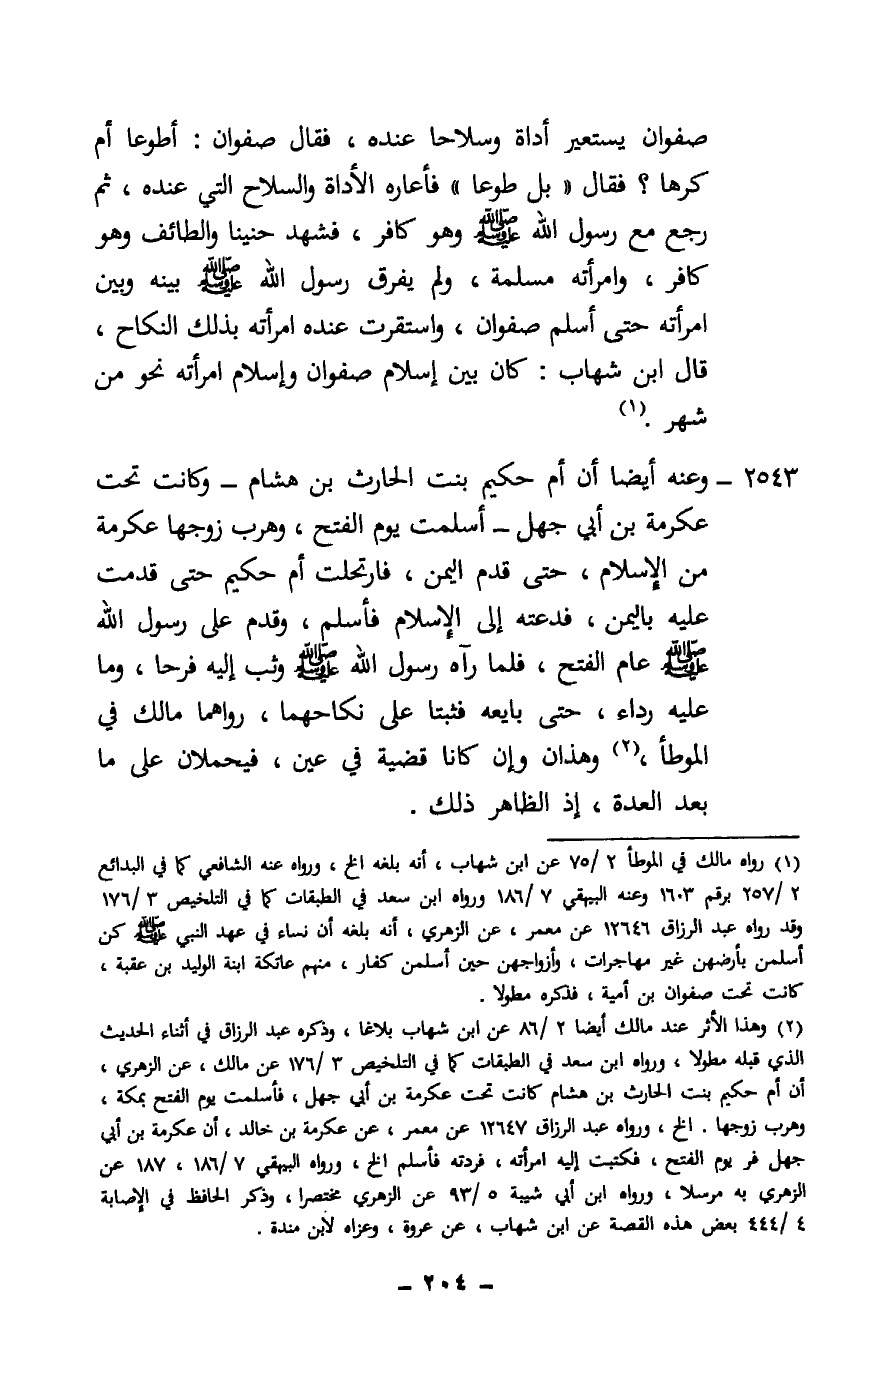 صفوان يستعير أداة وسلاحا عنده ، فقال صفوان : أطوعا أم
كرها ؟ فقال « بل طوعا » فأعاره الأداة والسلاح التي عنده ، ثم
رجع مع رسول الله ﷺ وهو كافر ، فشهد حنينا والطائف وهو
كافر ، وامرأته مسلمة ، ولم يفرق رسول الله ﷺ بينه وبين
امرأته حتى أسلم صفوان ، واستقرت عنده امرأته بذلك النكاح ،
قال ابن شهاب : كان بين إسلام صفوان وإسلام امرأته نحو من
شهر .(١)
٢٥٤٣ ـ وعنه أيضا أن أم حكيم بنت الحارث بن هشام ـ وكانت تحت
عكرمة بن أبي جهل ـ أسلمت يوم الفتح ، وهرب زوجها عكرمة
من الإسلام ، حتى قدم اليمن ، فارتحلت أم حكيم حتى قدمت
عليه باليمن ، فدعته إلى الإسلام فأسلم ، وقدم على رسول الله
ﷺ عام الفتح ، فلما رآه رسول الله ﷺ وثب إليه فرحا ، وما
عليه رداء ، حتى بايعه فثبتا على نكاحهما ، رواهما مالك في
الموطأ ،(٢) وهذان وإن كانا قضية في عين ، فيحملان على ما
بعد العدة ، إذ الظاهر ذلك .
(١) رواه مالك في الموطأ ٢ /٧٥ عن ابن شهاب ، أنه بلغه الخ ، ورواه عنه الشافعي كما في البدائع
٢ /٢٥٧ برقم ١٦٠٣ وعنه البيهقي ٧ /١٨٦ ورواه ابن سعد في الطبقات كما في التلخيص ٣ /١٧٦
وقد رواه عبد الرزاق ١٢٦٤٦ عن معمر ، عن الزهري ، أنه بلغه أن نساء في عهد النبي ﷺ كن
أسلمن بأرضهن غير مهاجرات ، وأزواجهن حين أسلمن كفار ، منهم عاتكة ابنة الوليد بن عقبة ،
كانت تحت صفوان بن أمية ، فذكره مطولا .
(٢) وهذا الأثر عند مالك أيضا ٢ /٨٦ عن ابن شهاب بلاغا ، وذكره عبد الرزاق في أثناء الحديث
الذي قبله مطولا ، ورواه ابن سعد في الطبقات كما في التلخيص ٣ /١٧٦ عن مالك ، عن الزهري ،
أن أم حكيم بنت الحارث بن هشام كانت تحت عكرمة بن أبي جهل ، فأسلمت يوم الفتح بمكة ،
وهرب زوجها . الخ ، ورواه عبد الرزاق ١٢٦٤٧ عن معمر ، عن عكرمة بن خالد ، أن عكرمة بن أبي
جهل فر يوم الفتح ، فكتبت إليه امرأته ، فردته فأسلم الخ ، ورواه البيهقي ٧ /١٨٦ ، ١٨٧ عن
الزهري به مرسلا ، ورواه ابن أبي شيبة ٥ /٩٣ عن الزهري مختصرا ، وذكر الحافظ في الإصابة
٤ /٤٤٤ بعض هذه القصة عن ابن شهاب ، عن عروة ، وعزاه لابن مندة .
ـ ٢٠٤ ـ